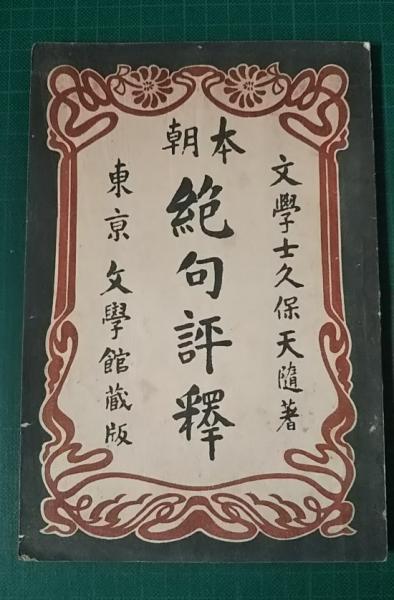 文學士久保天隨著
本朝
絶句評釋
東京文學館藏版